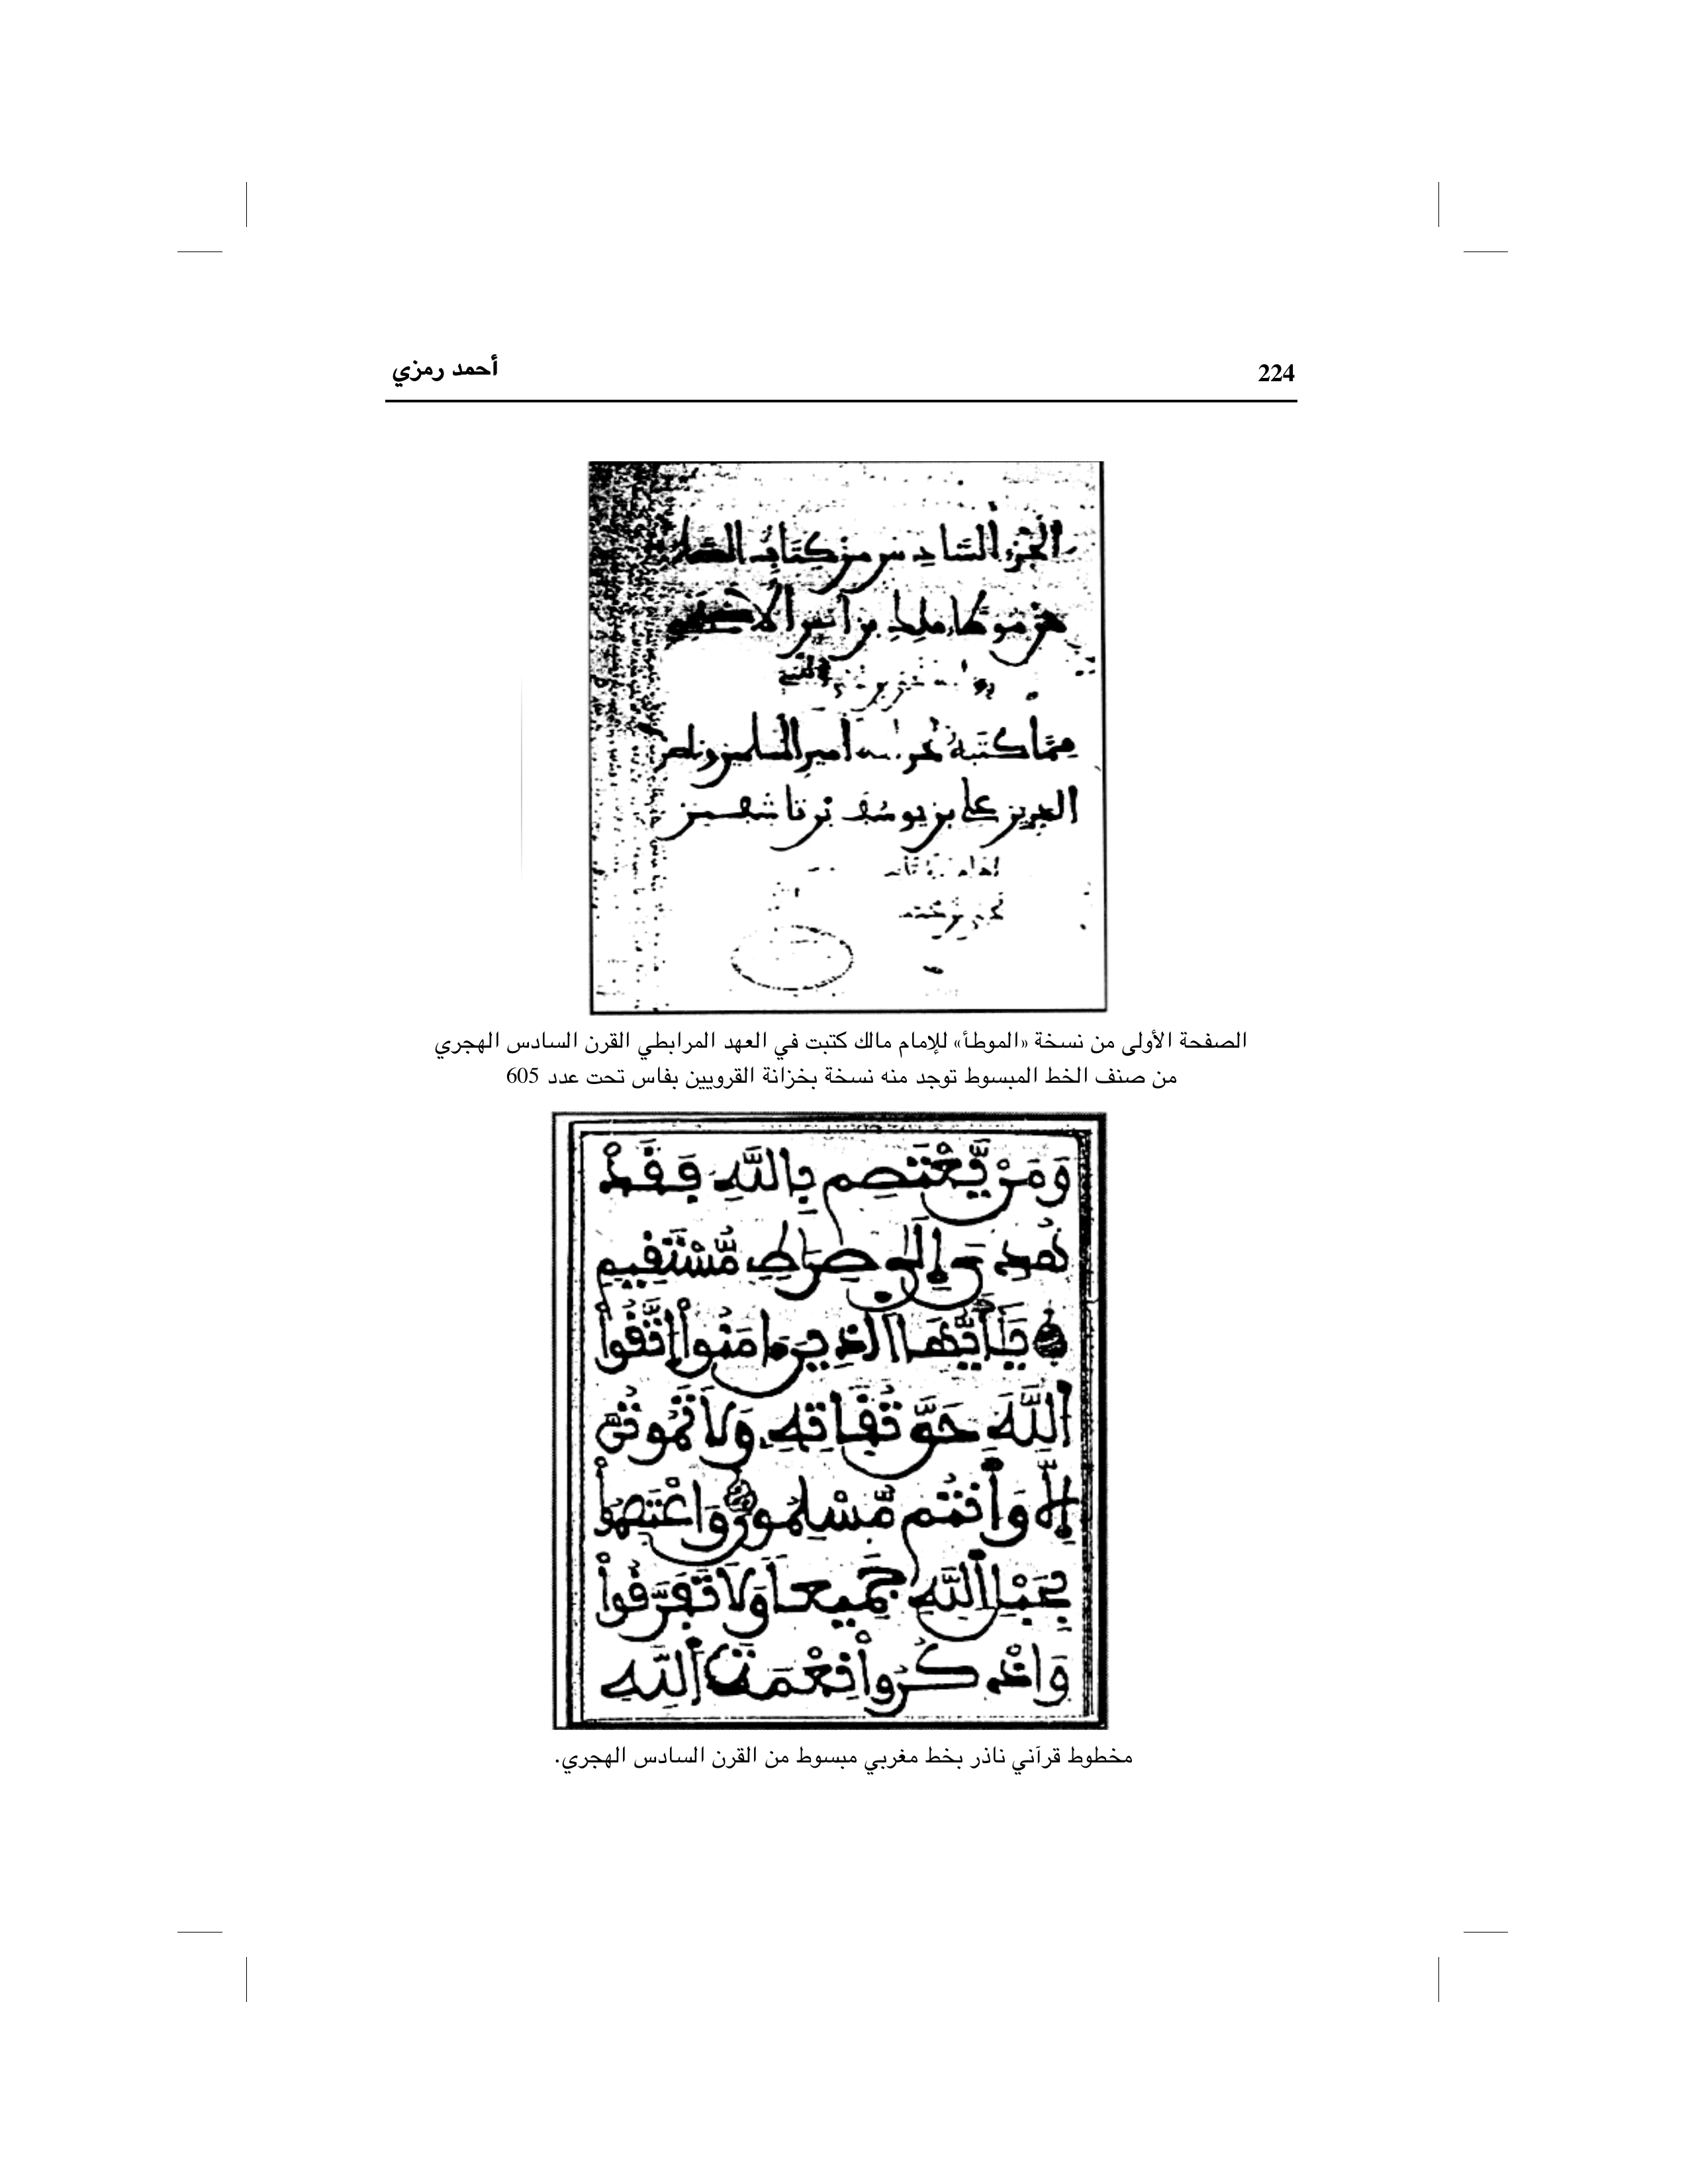 224
أحمد رمزي
الجزء السادس من كتاب الصلاة
من موطإ ملك بن أنس الأصبحي
مما كتبه أمير المسلمين وناصر
الدين علي بن يوسف بن تاشفين
الصفحة الأولى من نسخة «الموطأ» للإمام مالك كتبت في العهد المرابطي القرن السادس الهجري
من صنف الخط المبسوط توجد منه نسخة بخزانة القرويين بفاس تحت عدد 605
وَمَنْ يَّعْتَصِم بِاللَّهِ فَقَدْ
هُدِيَ إِلَى صِرَاطٍ مُّسْتَقِيمٍ
يَا أَيُّهَا الَّذِينَ ءَامَنُواْ اتَّقُواْ
اللَّهَ حَقَّ تُقَاتِهِ وَلَا تَمُوتُنَّ
إِلَّا وَأَنتُم مُّسْلِمُونَ وَاعْتَصِمُواْ
بِحَبْلِ اللَّهِ جَمِيعاً وَلَا تَفَرَّقُواْ
وَاذْكُرُواْ نِعْمَتَ اللَّهِ
مخطوط قرآني ناذر بخط مغربي مبسوط من القرن السادس الهجري.